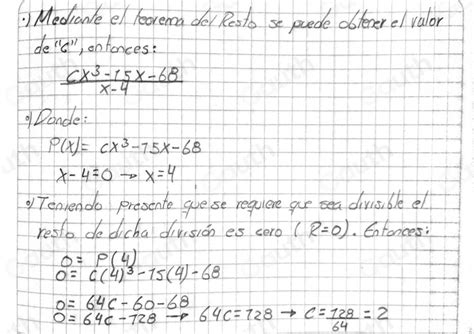 ·) Mediante el teorema del Resto se puede obtener el valor
de "c", entonces:
cx³-15x-68
x-4
·) Donde:
P(x)= cx³-15x-68
x-4=0 → x=4
·) Teniendo presente que se requiere que sea divisible el
resto de dicha división es cero (R=0). Entonces:
0= P(4)
0= c(4)³-15(4)-68
0= 64c-60-68
0= 64c-128 → 64c=128 → c= 128/64 = 2